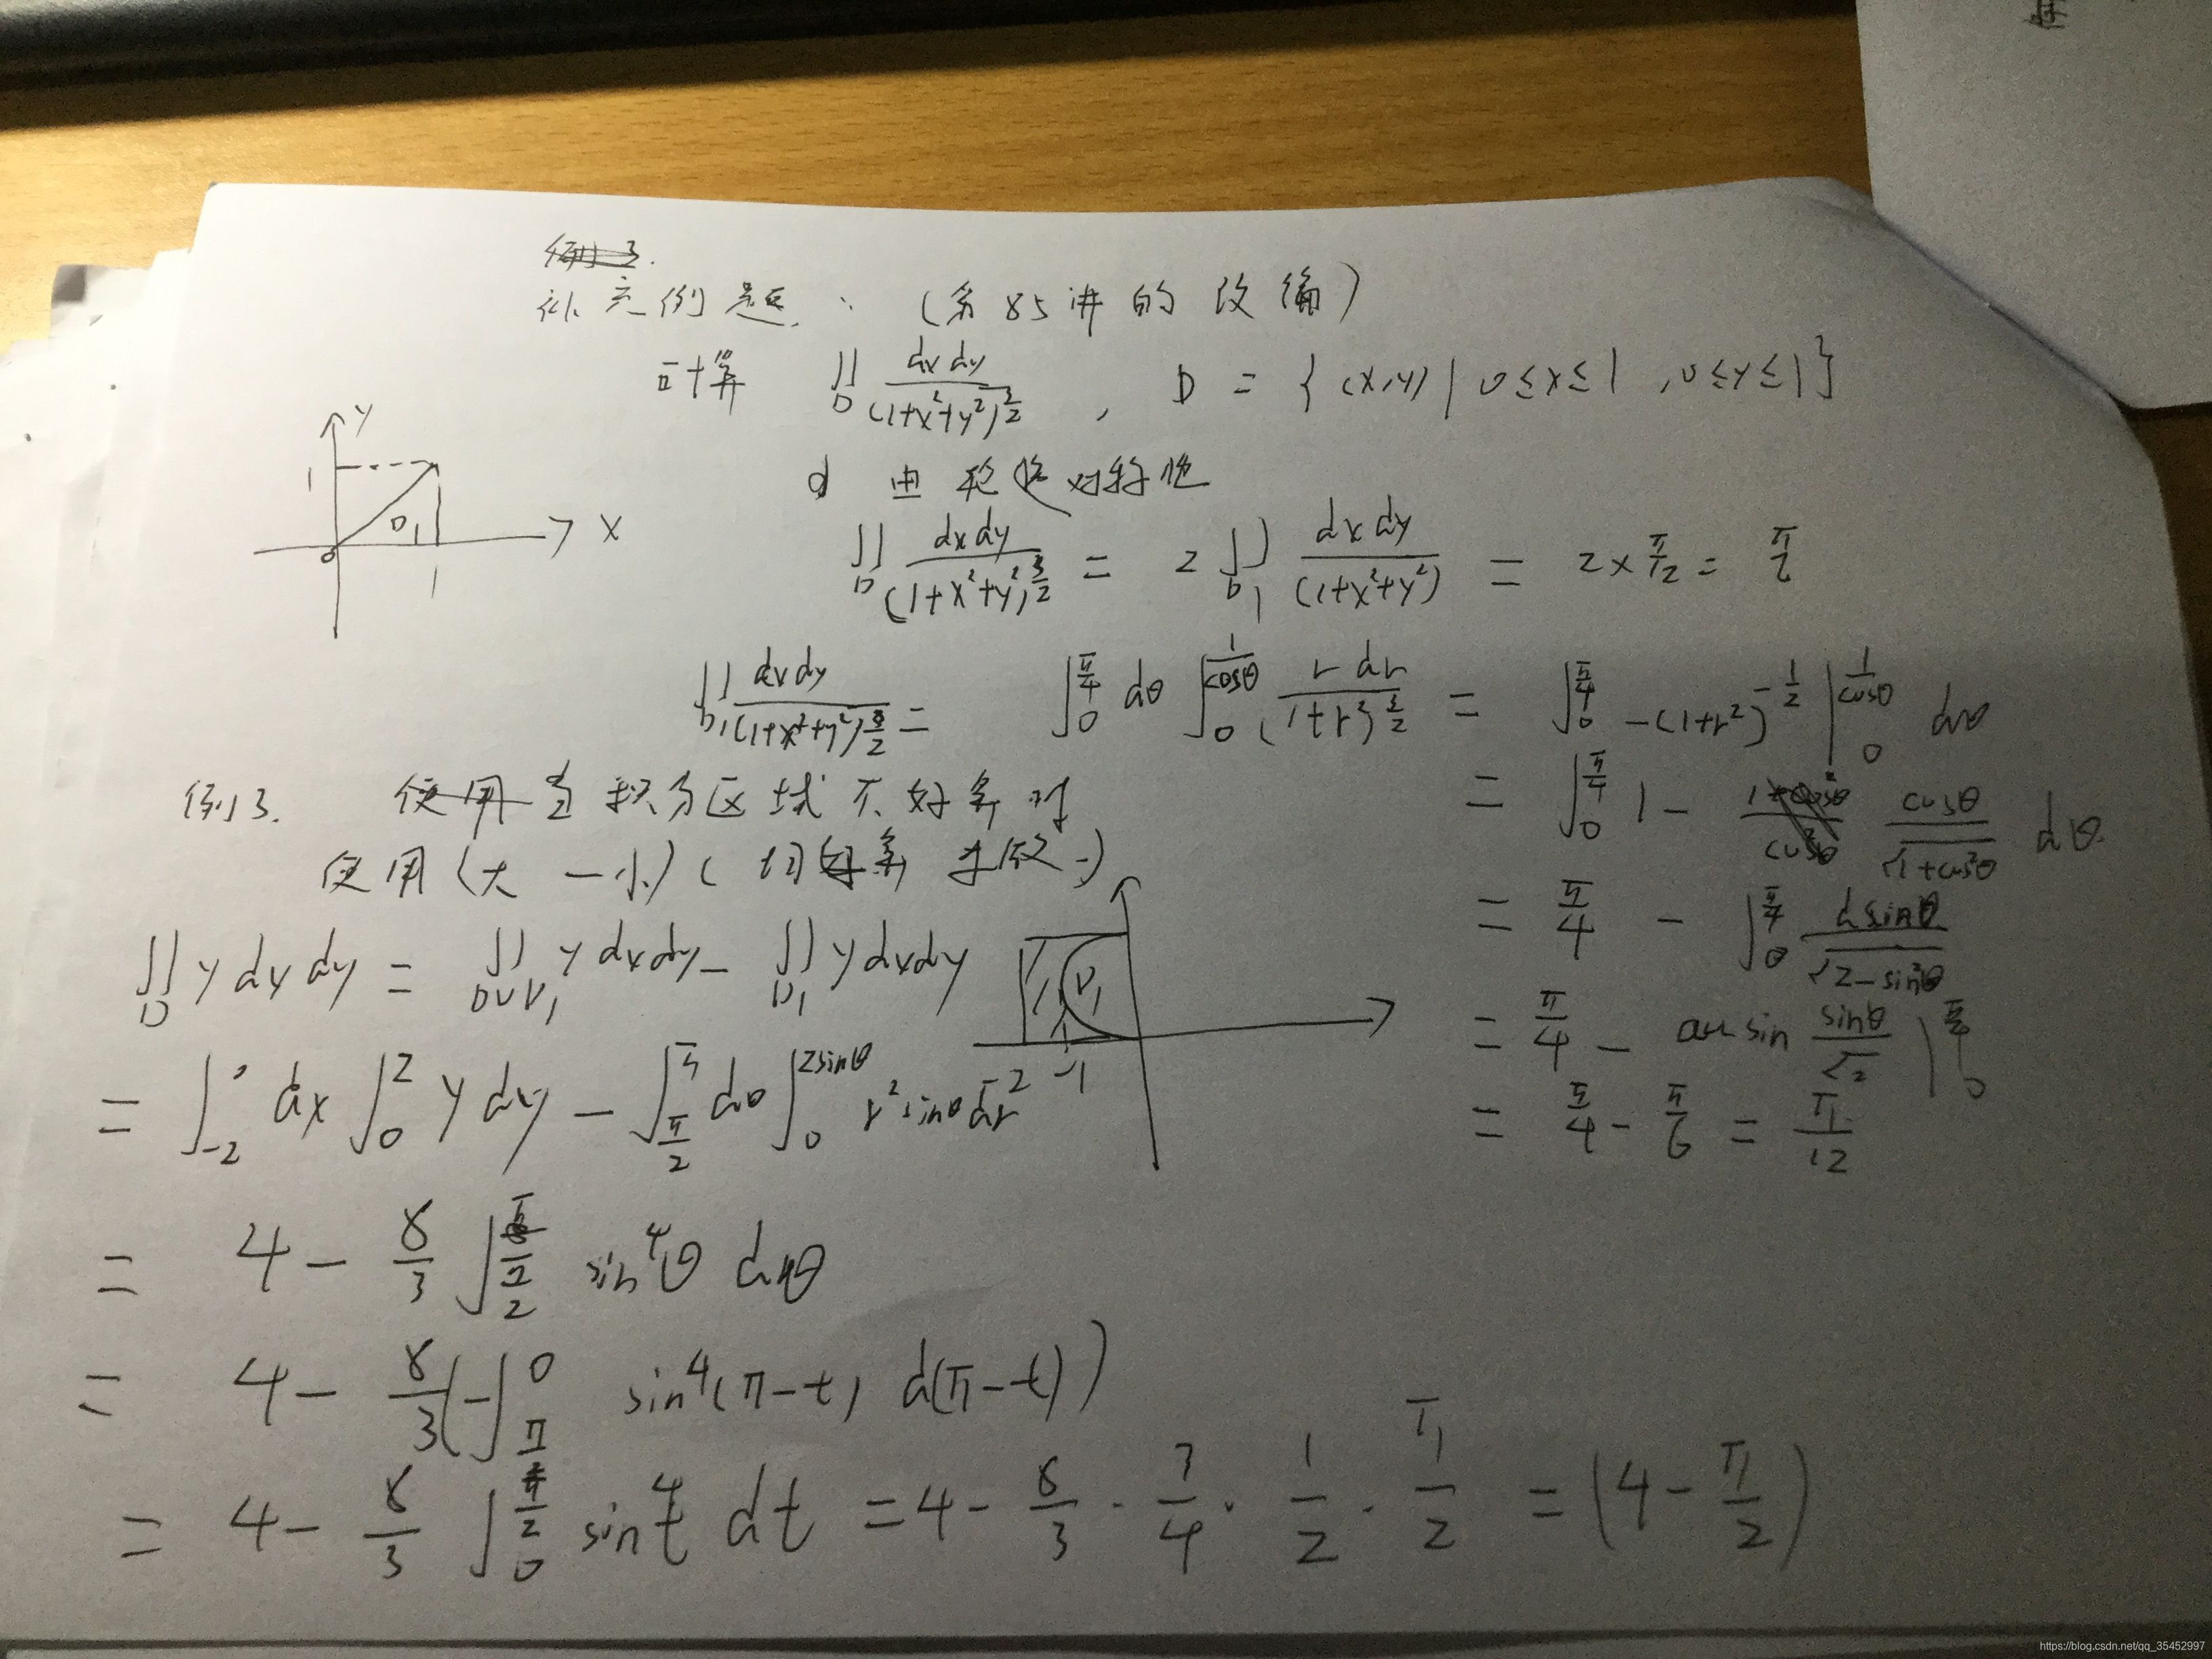 例3.
补充例题：（第85讲的改编）
计算 ∬_D dxdy/(1+x²+y²)^{3/2} , D = {(x,y) | 0≤x≤1 ,0≤y≤1}
y
1
D₁
0
1
x
由轮换对称性
∬_D dxdy/(1+x²+y²)^{3/2} = 2∬_{D₁} dxdy/(1+x²+y²) = 2×π/12 = π/6
∬_{D₁} dxdy/(1+x²+y²)^{3/2} = ∫_0^{π/4} dθ ∫_0^{1/cosθ} r dr/(1+r²)^{3/2} = ∫_0^{π/4} -(1+r²)^{-1/2} |_0^{1/cosθ} dθ
= ∫_0^{π/4} 1 - cosθ/√(1+cos²θ) dθ
= π/4 - ∫_0^{π/4} dsinθ/√(2-sin²θ)
= π/4 - arcsin sinθ/√2 |_0^{π/4}
= π/4 - π/6 = π/12
例3. 使用当积分区域不好算时
使用（大一小）
∬_D y dxdy = ∬_{D∪D₁} y dxdy - ∬_{D₁} y dxdy
D₁
-2 -1
= ∫_{-2}^0 dx ∫_0^2 y dy - ∫_{π/2}^π dθ ∫_0^{2sinθ} r² sinθ dr
= 4 - 8/3 ∫_{π/2}^π sin⁴θ dθ
= 4 - 8/3 (-∫_{π/2}^0 sin⁴(π-t) d(π-t))
= 4 - 8/3 ∫_0^{π/2} sin⁴t dt = 4 - 8/3 · 3/4 · 1/2 · π/2 = (4 - π/2)
https://blog.csdn.net/qq_35452997